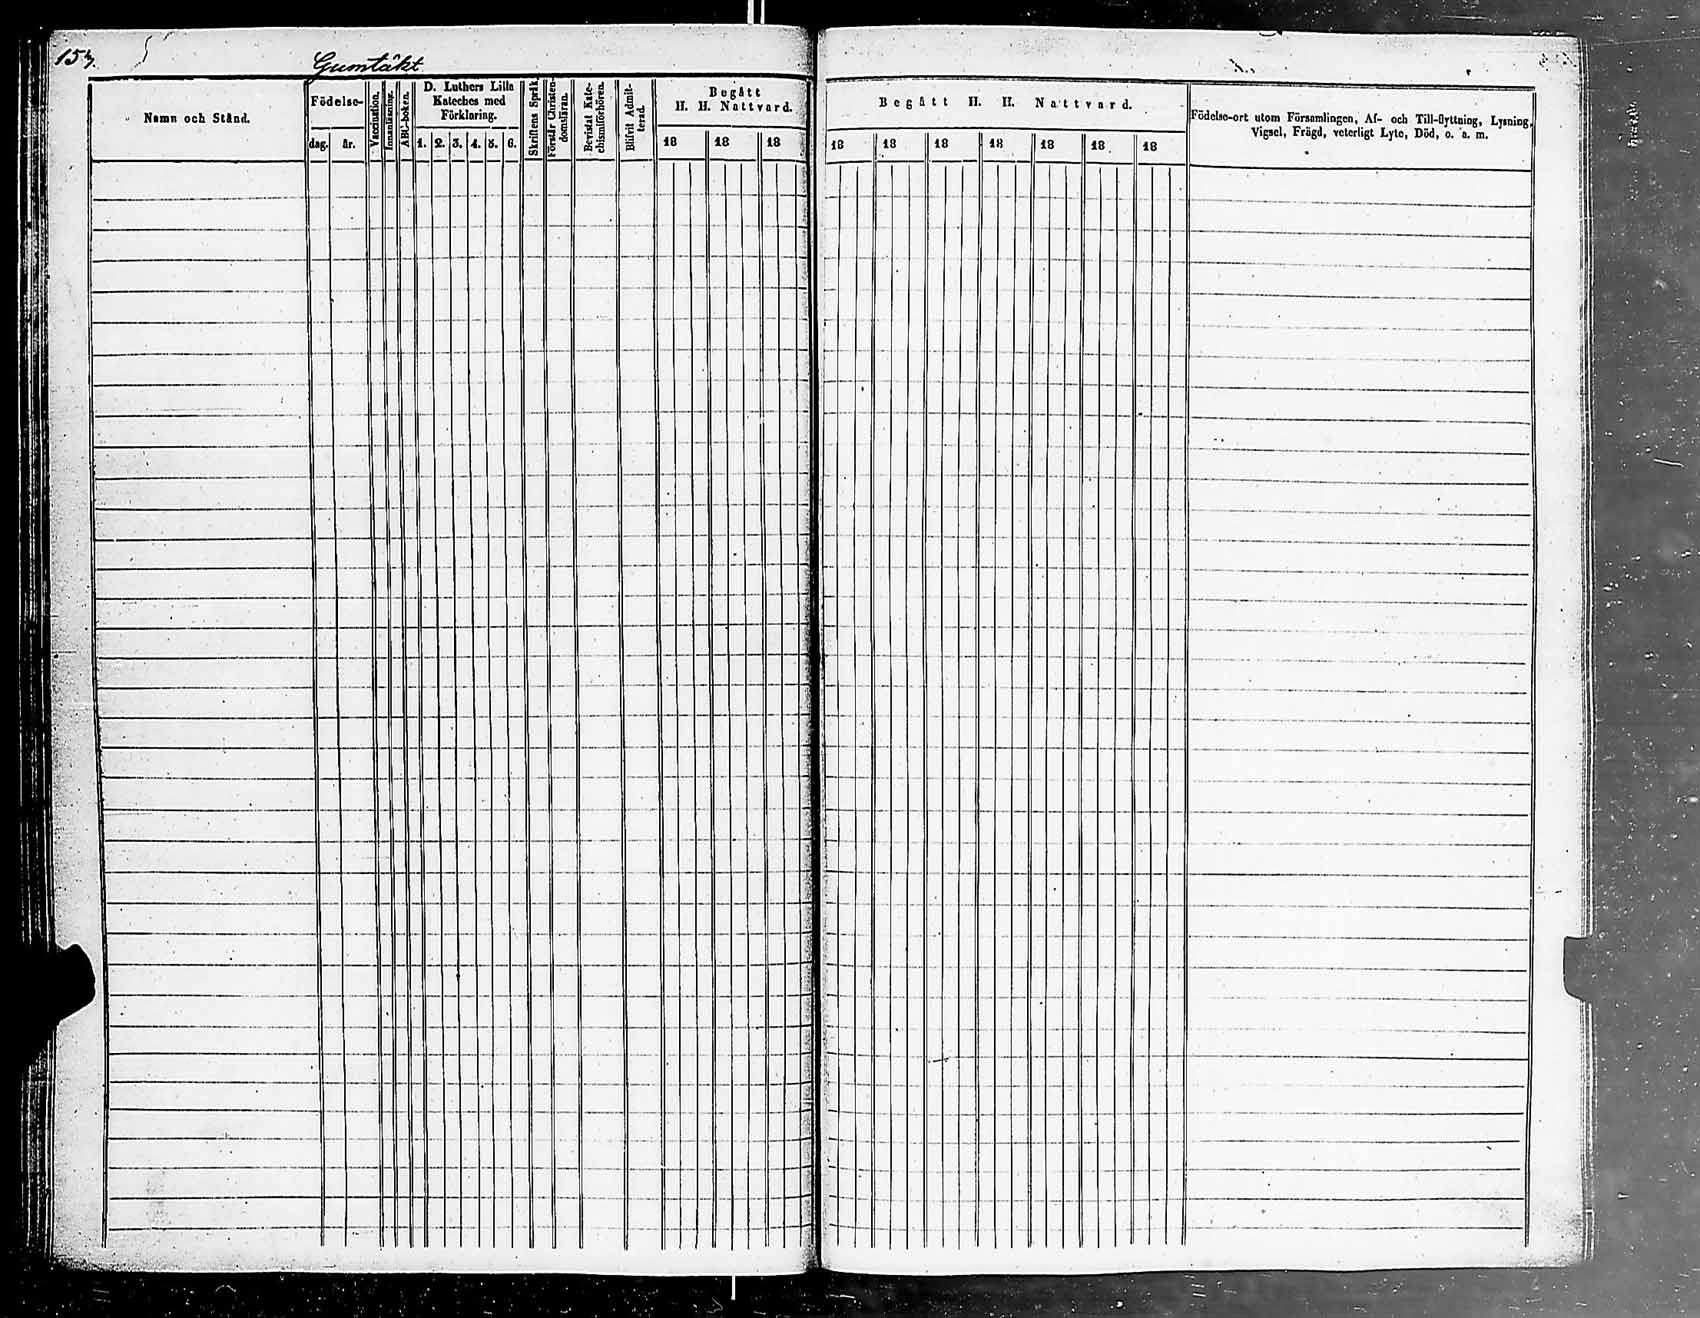 153.
Gumtäkt
Namn och Stånd.
Födelse-
dag. år.
Vaccination.
Innanläsning.
ABC-boken.
D. Luthers Lilla
Kateches med
Förklaring.
1. 2. 3. 4. 5. 6.
Skriftens Språk.
Förstår Christen-
domsläran.
Bevistat Kate-
chismiförhören.
Blifvit Admit-
terad.
Begått
H. H. Nattvard.
18 18 18
Begått H. H. Nattvard.
18 18 18 18 18 18 18
Födelse-ort utom Församlingen, Af- och Till-flyttning, Lysning,
Vigsel, Frägd, veterligt Lyte, Död, o. s. m.